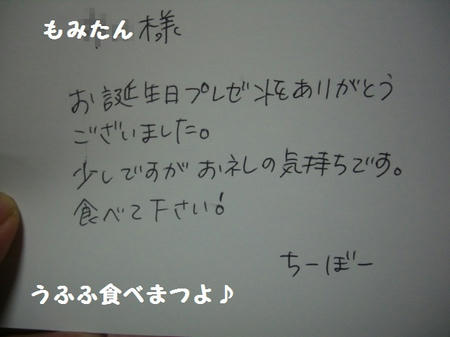 もみたん 様
お誕生日プレゼントをありがとう
ございました。
少しですがお礼の気持ちです。
食べて下さい!
ちーぼー
うふふ食べまつよ♪